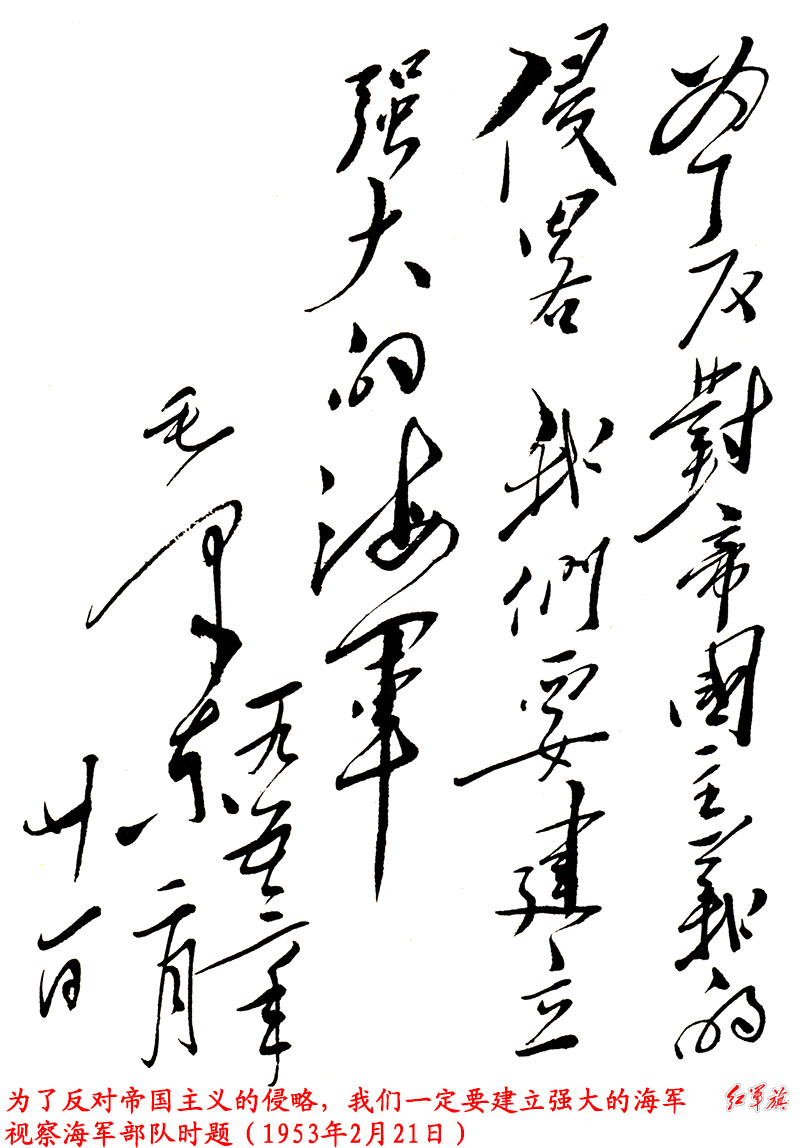 为了反對帝國主義的
侵畧 我們要建立
强大的海軍
毛泽东
一九五三年
二月
廿一日
为了反对帝国主义的侵略，我们一定要建立强大的海军
视察海军部队时题（1953年2月21日）
红军旗